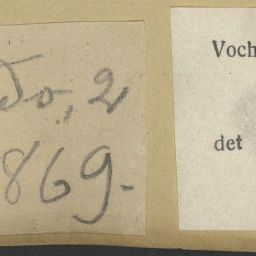 do, 2
869.-
Voch
det